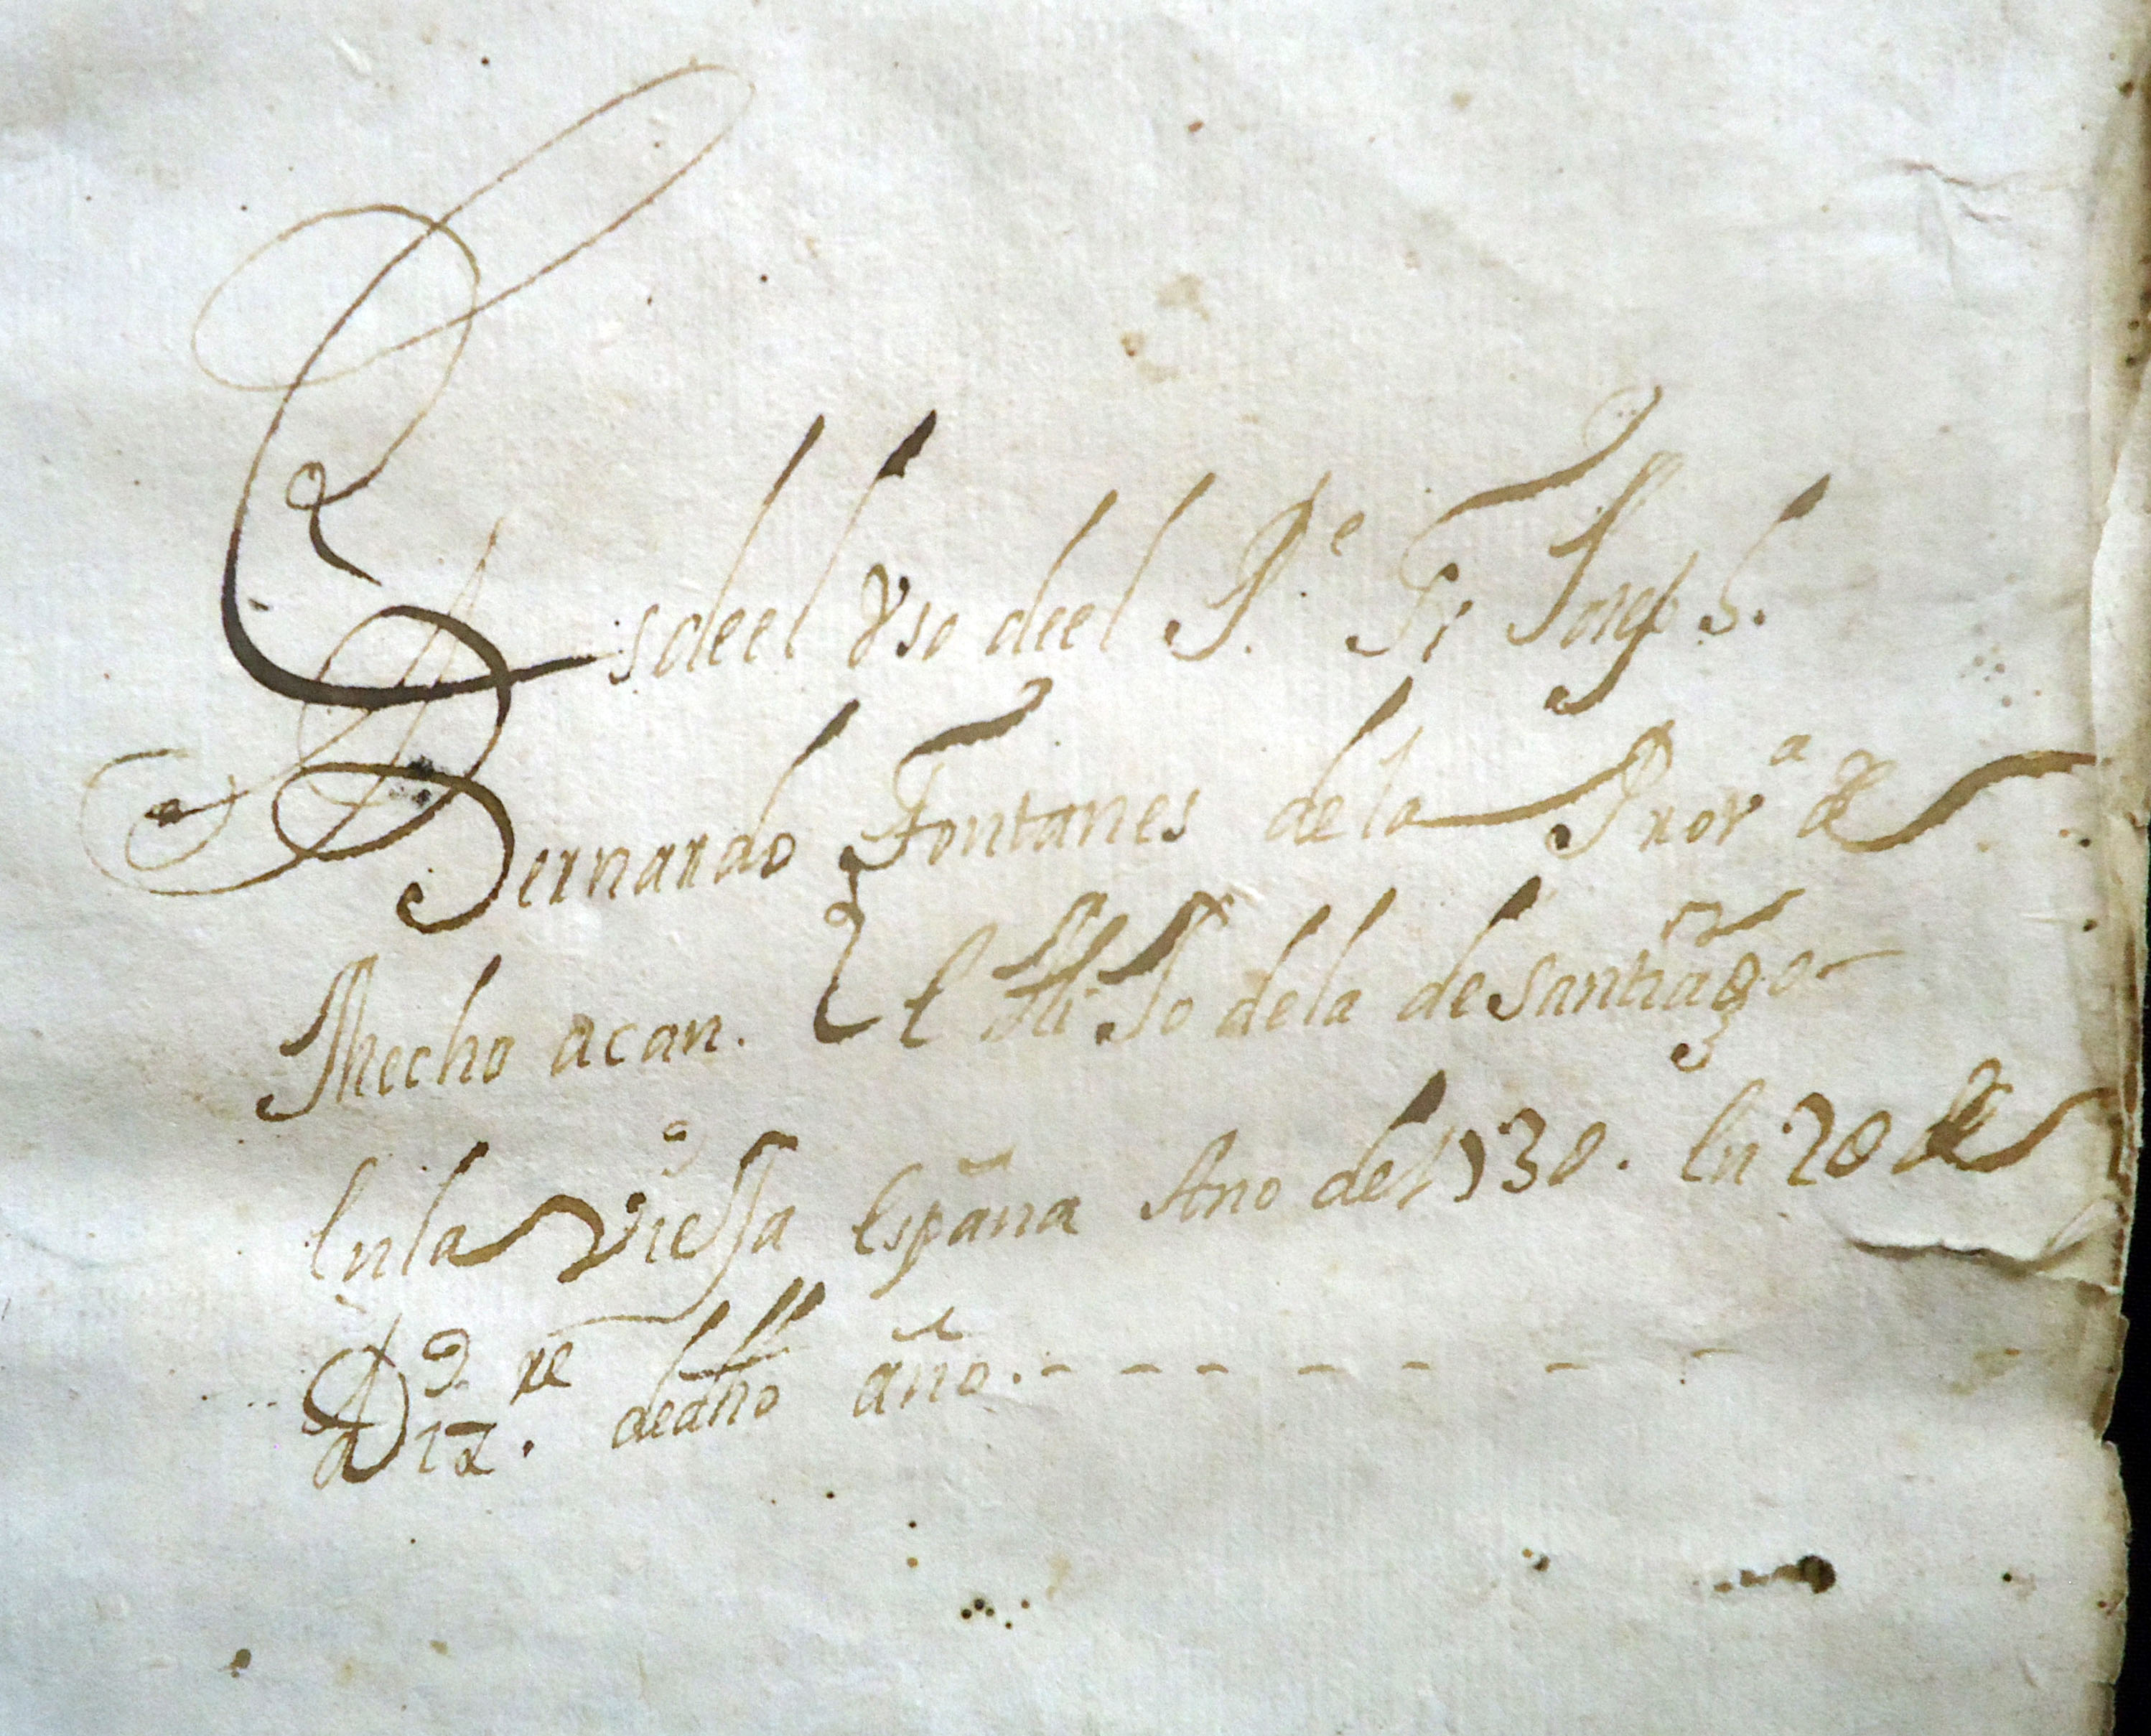 Es deel Vso deel P.e Fr Joseph.
Bernardo Fontanes de la Prov.a de
Mechoacan. E Hijo de la de Santiago
En la Vieja España Año de 1730. En 20 de
Diz.re de dho año.